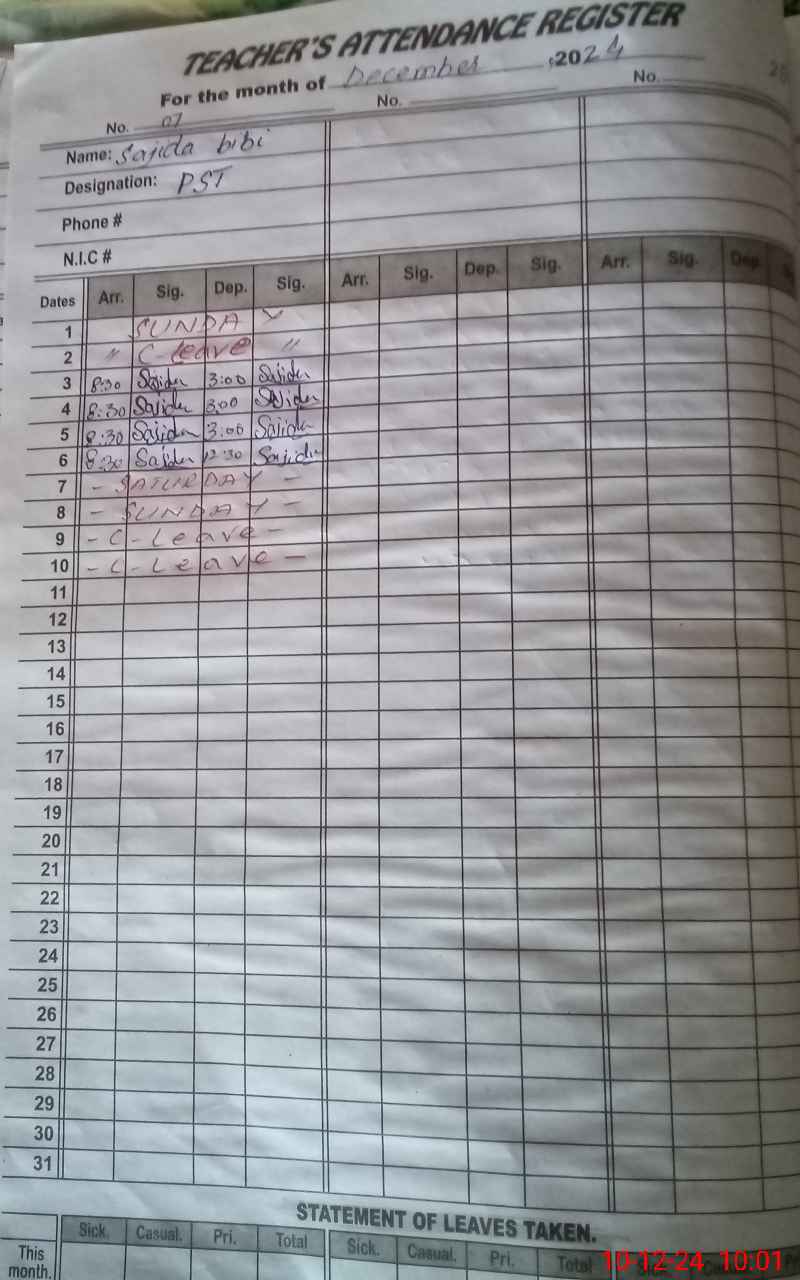 TEACHER'S ATTENDANCE REGISTER
For the month of December ,2024
No. 01 No. No.
Name: Sajida bibi
Designation: PST
Phone #
N.I.C #
Dates Arr. Sig. Dep. Sig. Arr. Sig. Dep. Sig. Arr. Sig. Dep.
1 SUNDAY
2 " C-leave "
3 8:30 Sajida 3:00 Sajida
4 8:30 Sajida 3:00 Sajida
5 8:30 Sajida 3:00 Sajida
6 8:30 Sajida 12:30 Sajida
7 - SATURDAY -
8 - SUNDAY -
9 - C - Leave -
10 - C - Leave -
11
12
13
14
15
16
17
18
19
20
21
22
23
24
25
26
27
28
29
30
31
STATEMENT OF LEAVES TAKEN.
Sick. Casual. Pri. Total Sick. Casual. Pri. Total
This
month.
10-12-24 10:01